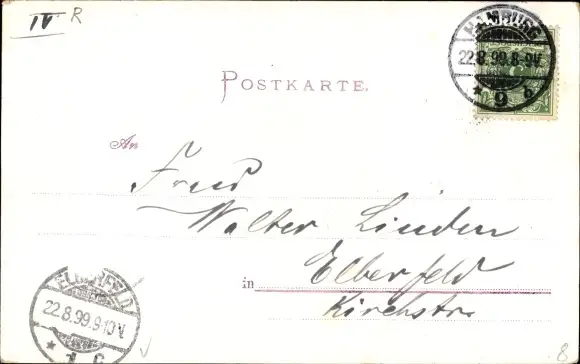 IV R
HAMBURG
22.8.99.8-9V.
* 9 b
POSTKARTE.
An
Walter Linden
in Elberfeld
Kirchstr
ELBERFELD
22.8.99.9-10V.
* 1 c
8